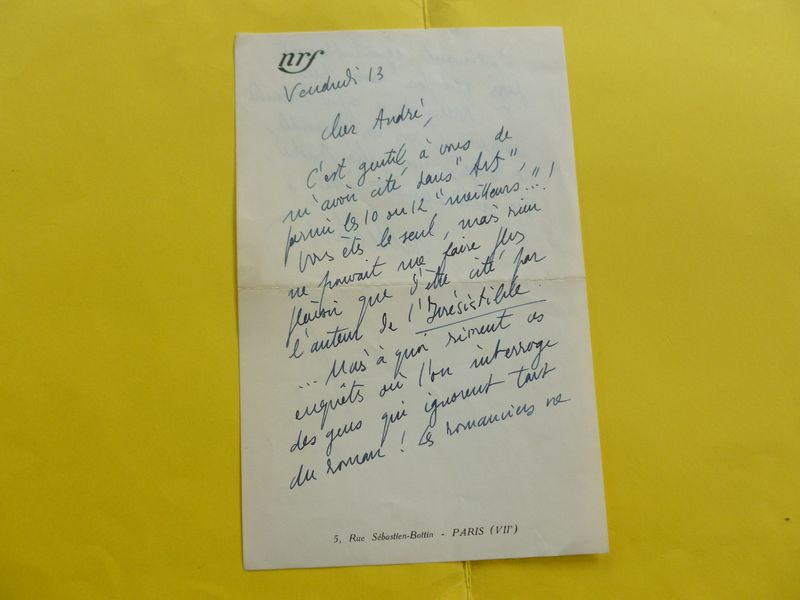 nrf
Vendredi 13
Cher André,
C'est gentil, à vous de
m'avoir cité, dans "Arts",
parmi les 10 ou 12 "meilleurs..."!
Vous êtes le seul, mais rien
ne pouvait me faire plus
plaisir que d'être cité par
l'auteur de l'Irrésistible.
... Mais à quoi riment ces
enquêtes où l'on interroge
des gens qui ignorent tout
du roman! Les romanciers ne
5, Rue Sébastien-Bottin - PARIS (VIIe)